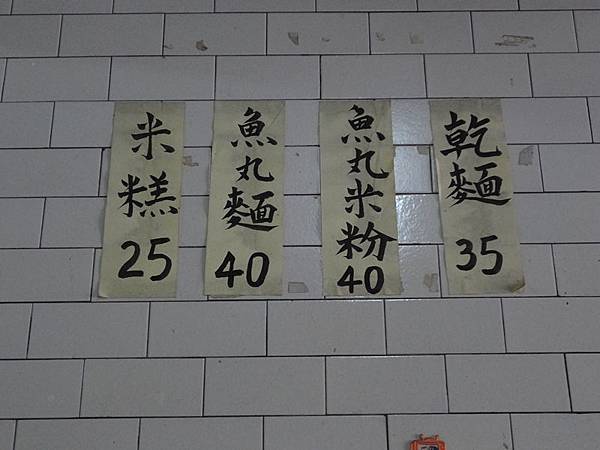 米糕
25
魚丸麵
40
魚丸米粉
40
乾麵
35